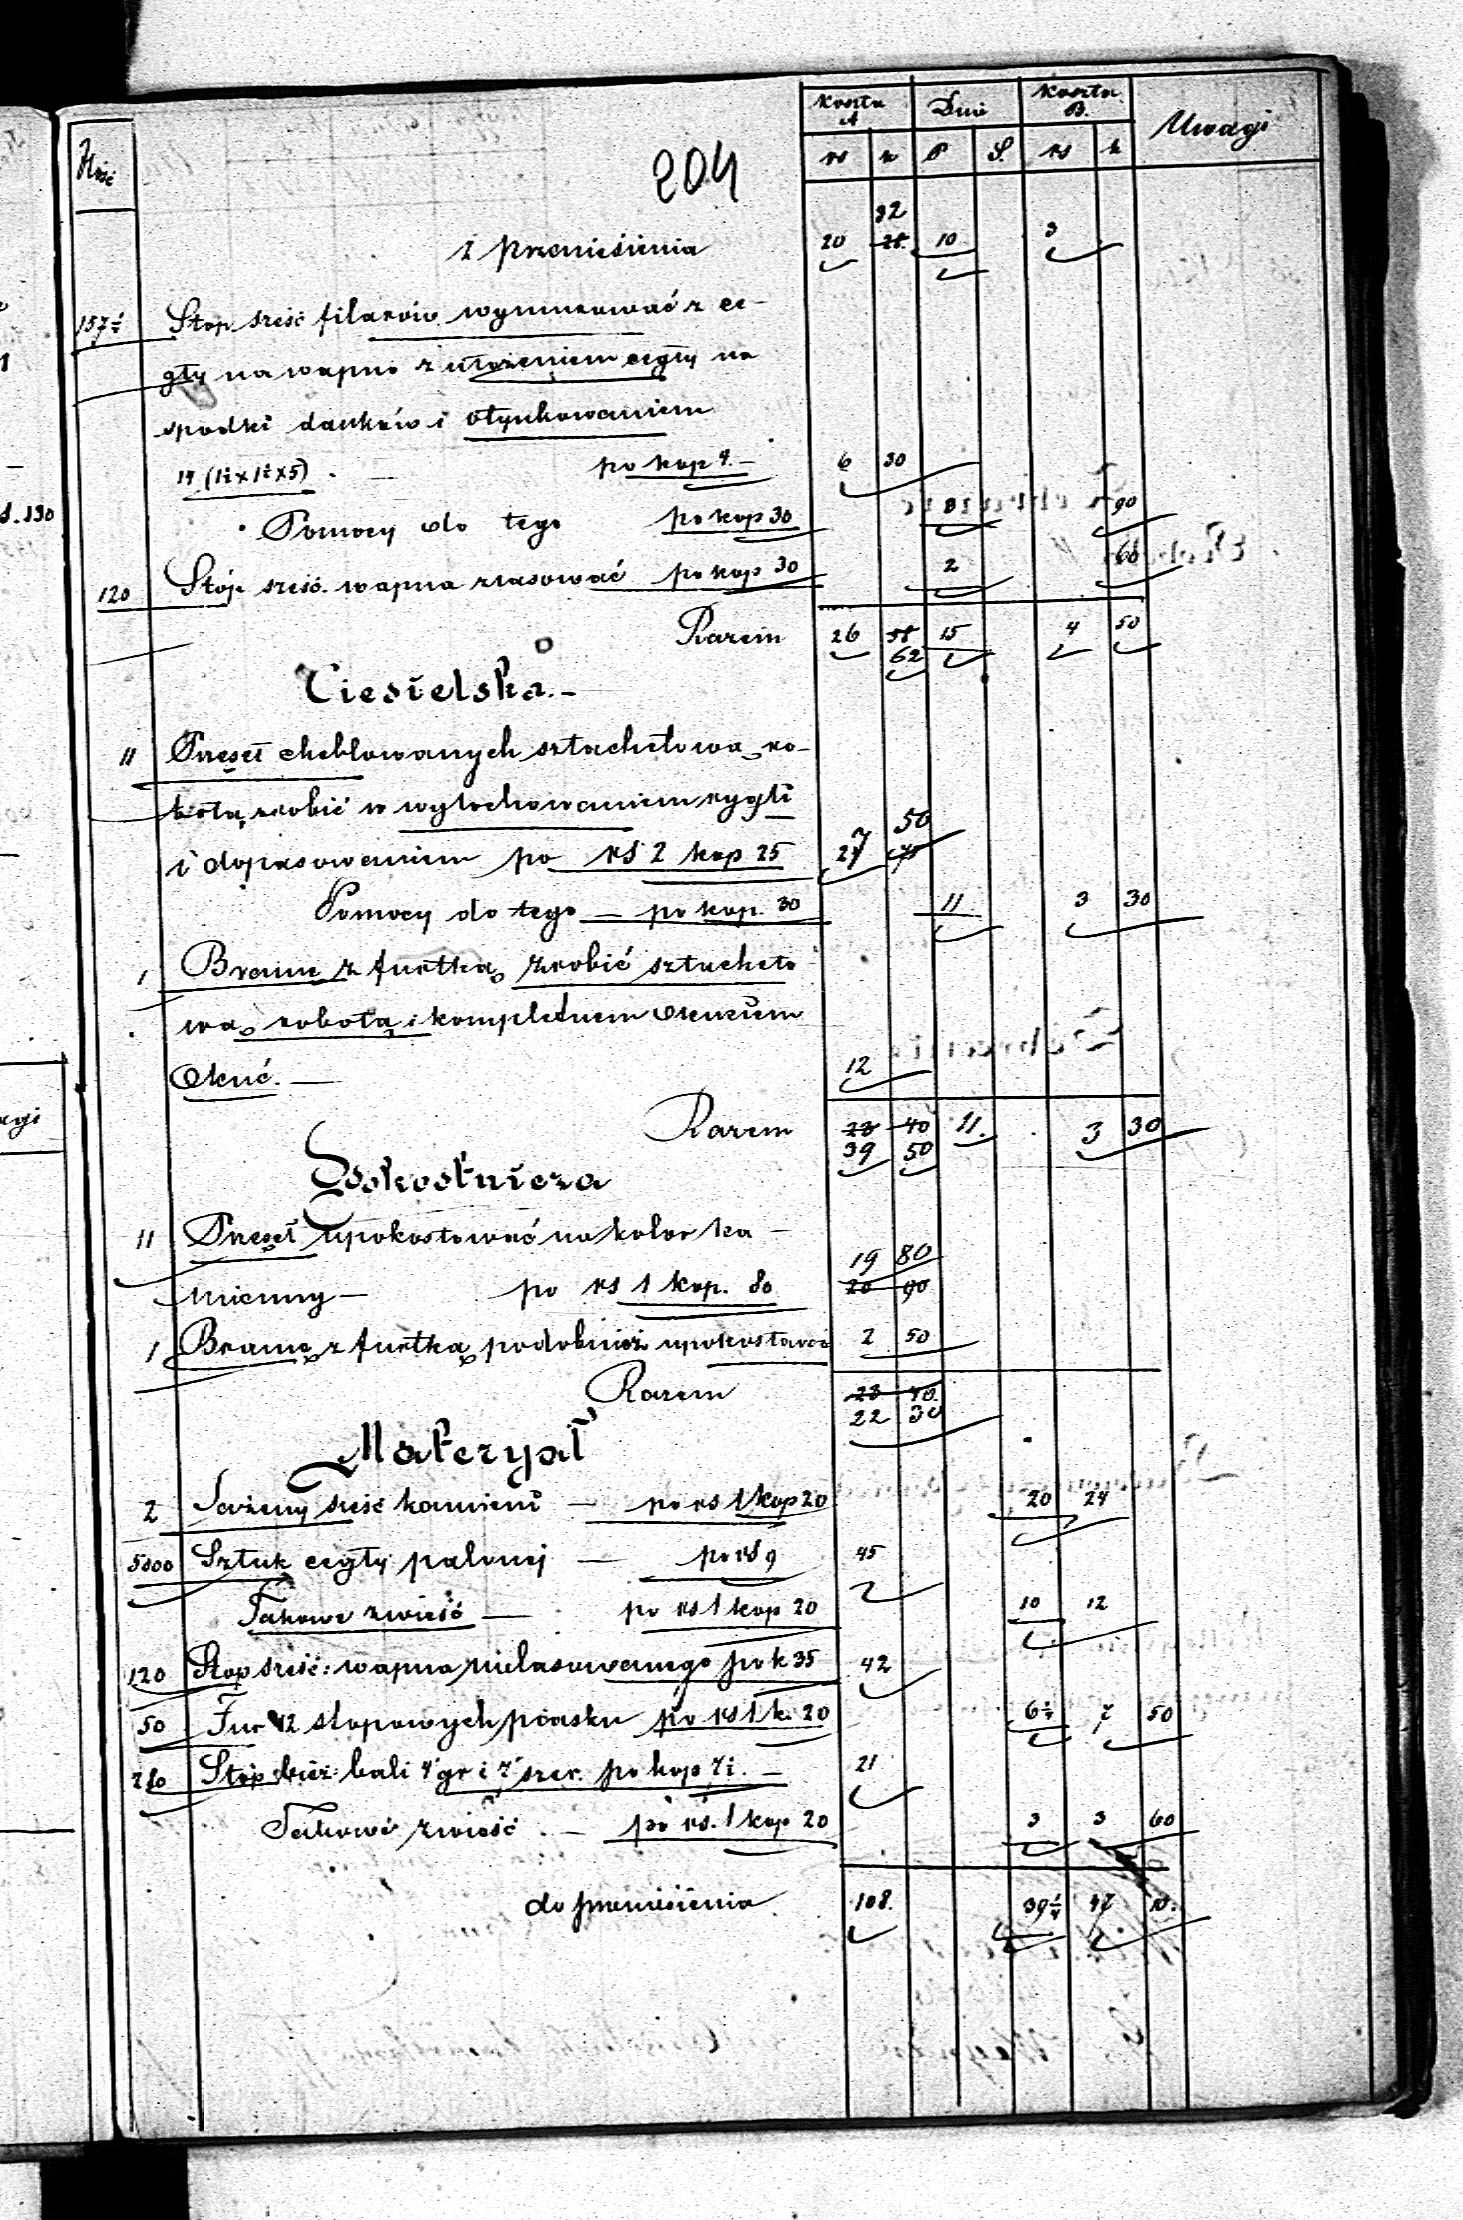 Koszta A Dnie Koszta B. Uwagi
Ilość rs k P S. rs k
204
z przeniesienia 20 32 28 10 3
157½ Stop sześć filarów wymurować z ce-
gły na wapno z ułożeniem cegły na
spodki daszków i otynkowaniem
14 (1½ x 1½ x 5) po kop 4.- 6 30
Pomocy do tego po kop 30 3 90
120 Stóp sześć. wapna zlasować po kop 30 2 60
Razem 26 58 62 15 4 50
Ciesielska.-
11 Przęseł cheblowanych sztachetową ro-
botą zrobić w wytochowaniem rygli
i dopasowaniem po rs 2 kop 25 27 50
Pomocy do tego — po kop. 30 11 3 30
1 Bramę z furtką zrobić sztacheto
wą robotą i kompletnem okuciem
Okuć. — 12
Razem 23 40 39 50 11. 3 30
Pokostnicza
11 Przęseł upokostować na kolor ka-
mienny — po rs 1 kop. 80 19 80 20 90
1 Bramę z furtką podobnież upokostować 2 50
Razem 23 40 22 30
Materyał
2 Sążeny sześć kamieni — po rs 1 kop 20 20 24
5000 Sztuk cegły palonej — po rs 9 45
Takowe zwieść — po rs 1 kop 20 10 12
120 Stóp sześć: wapna nielasowanego po k 35 42
50 Fur 12 stopowych piasku po rs 1 k. 20 6¼ 7 50
280 Stóp bież: bali 4" gr i 7" szer. po kop 7½. - 21
Takowe zwieść. — po rs. 1 kop 20 3 3 60
do przeniesienia 108. 39¼ 47 10.